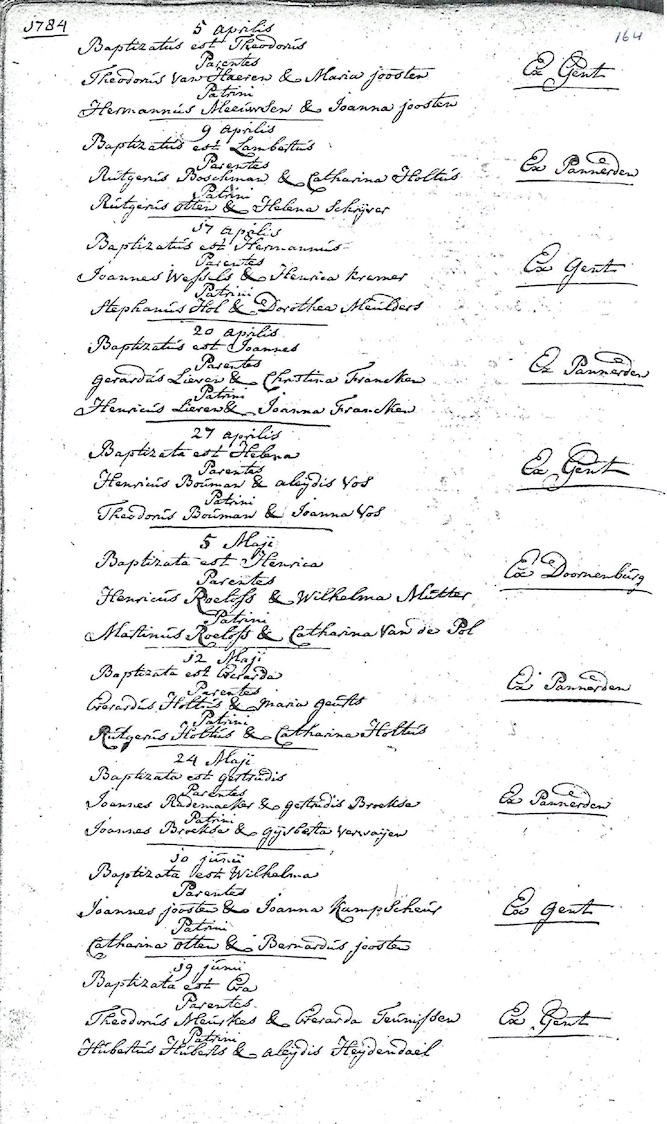 1784
164
5 aprilis
Baptizatus est Theodorus
Parentes
Theodorus Van Haeren & Maria joosten
Ex Gent
Patrini
Hermannus Meeuwsen & Joanna joosten
9 aprilis
Baptizatus est Lambertus
Parentes
Rutgerus Boschman & Catharina Holtus
Ex Pannerden
Patrini
Rutgerus Otten & Helena Schrijver
17 aprilis
Baptizatus est Hermannus
Parentes
Joannes Wessels & Henrica Kremer
Ex Gent
Patrini
Stephanus Hol & Dorothea Meulders
20 aprilis
Baptizatus est Joannes
Parentes
gerardus Lieren & Christina Francken
Ex Pannerden
Patrini
Henricus Lieren & Joanna Francken
27 aprilis
Baptizata est Helena
Parentes
Henricus Bouman & aleydis Vos
Ex Gent
Patrini
Theodorus Bouman & Joanna Vos
5 Maji
Baptizata est Henrica
Parentes
Henricus Roelofs & Wilhelma Mutter
Ex Doornenburg
Patrini
Martinus Roelofs & Catharina Van de Pol
12 Maji
Baptizata est Gerarda
Parentes
Gerardus Holtus & Maria geurts
Ex Pannerden
Patrini
Rutgerus Holtus & Catharina Holtus
24 Maji
Baptizata est gertrudis
Parentes
Joannes Rademaeker & gertrudis Broekse
Ex Pannerden
Patrini
Joannes Broekse & gijsberta verwaijen
10 junii
Baptizata est Wilhelma
Parentes
Joannes joosten & Joanna Kampscheur
Ex gent
Patrini
Catharina Otten & Bernardus joosten
19 junii
Baptizata est Eva
Parentes
Theodorus Meurkes & Gerarda Teunissen
Ex Gent
Patrini
Hubertus Huberts & aleydis Heydendael